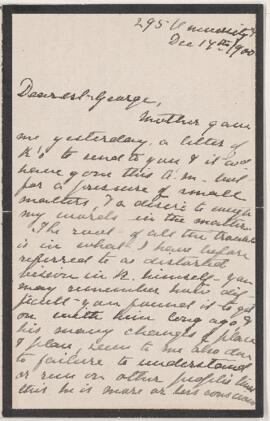 295 University
Dec 17th/900
Dearest George,
Mother gave
me yesterday a letter of
K's to send to you & it wd
have gone this a.m. but
for a pressure of small
matters, & a desire to weigh
my words in the matter.
The root of all the trouble
is in what I have before
referred to as distorted
vision in K. himself - you
may remember how dif-
ficult you found it to get
on with him long ago, &
his many changes of place
& plan, seem to me also due
to failure to understand
or run on other people's lines
this he is more or less conscious